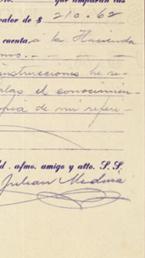 que amparan las
valor de $ 210.62
cuenta, a la Hacienda
instrucciones he re-
el conocimien-
de mi referi-
d. afmo. amigo y atto. S. S.
Julian Medina